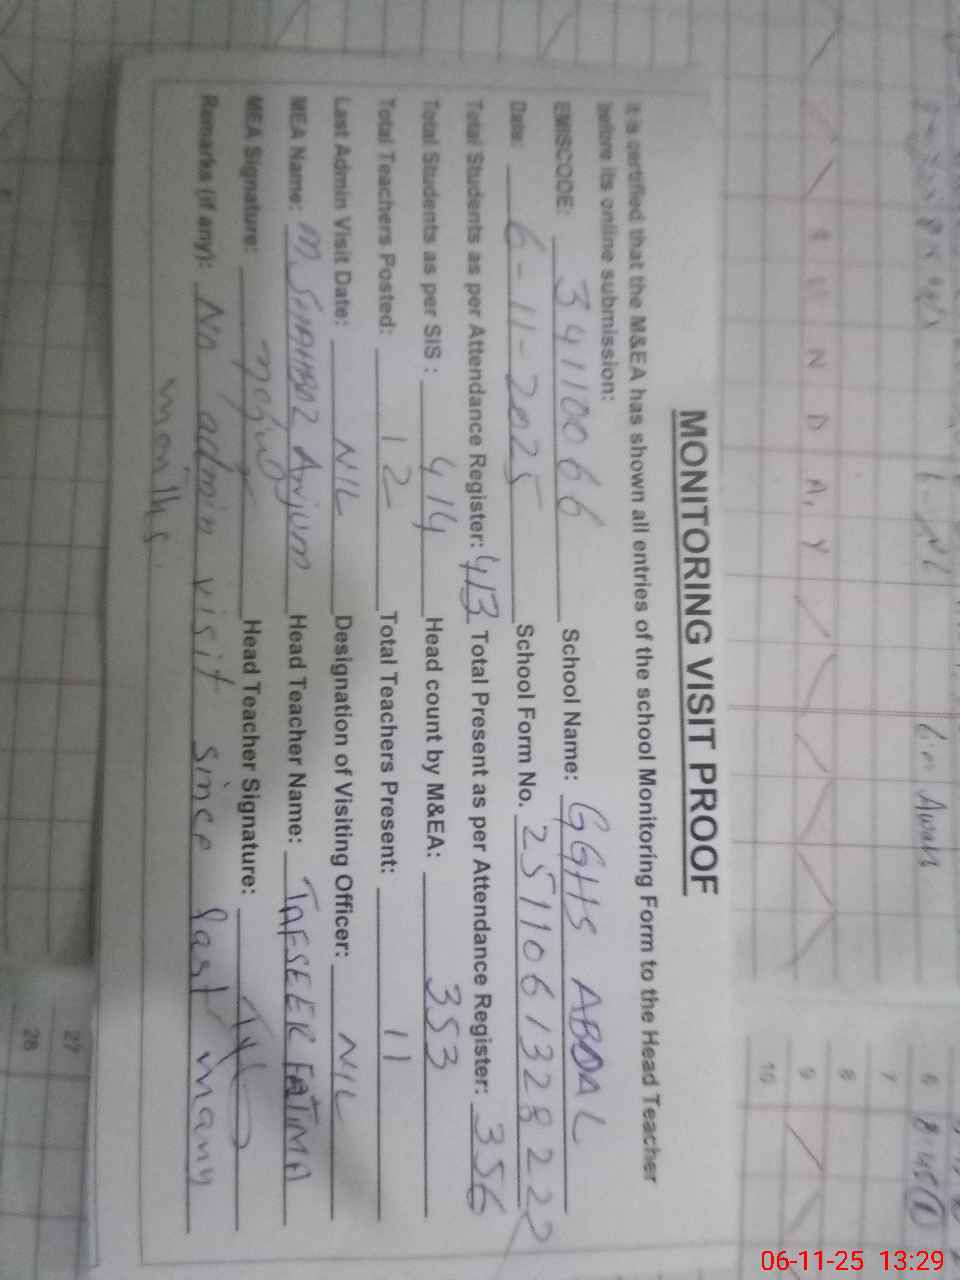 MONITORING VISIT PROOF
It is certified that the M&EA has shown all entries of the school Monitoring Form to the Head Teacher
before its online submission:
EMISCODE: 34110066 School Name: GGHS ABDAL
Date: 6-11-2025 School Form No. 2511061328222
Total Students as per Attendance Register: 413 Total Present as per Attendance Register: 356
Total Students as per SIS : 414 Head count by M&EA: 353
Total Teachers Posted: 12 Total Teachers Present: 11
Last Admin Visit Date: NIL Designation of Visiting Officer: NIL
MEA Name: M. SHAHBAZ Anjum Head Teacher Name: TAFSEER FATIMA
MEA Signature: Head Teacher Signature:
Remarks (if any): No admin visit since last many
months.
SUNDAY
6
7
8
9
10
8:45
27
28
06-11-25 13:29